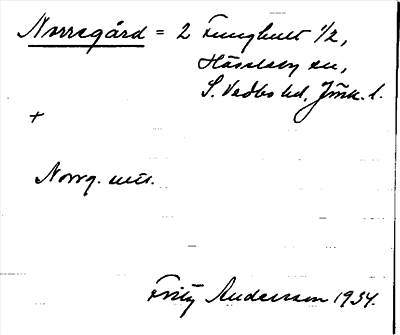 Norregård = 2 Ljunghult 1/2,
Hässleby sn,
S. Vedbo hd, Jönk. l.
+
Norrg. utt.
Fritz Anderson 1934.